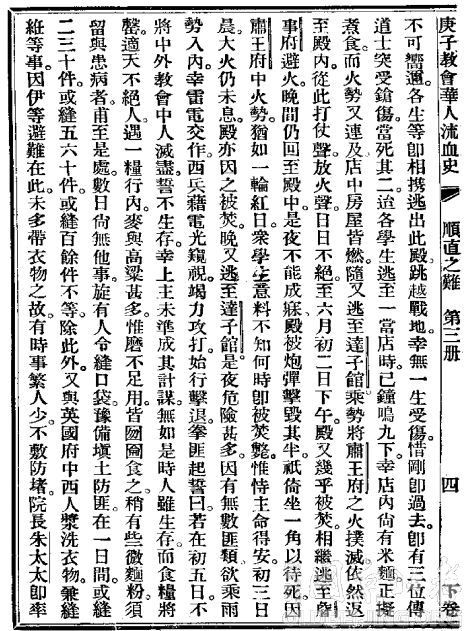 庚子教會華人流血史 順直之難 第三册 四 下卷
不可嚮邇。各生等卽相携逃出此殿。跳越戰地。幸無一生受傷。惜剛卽過去。卽有三位傳
道士突受鎗傷。當死其二。迨各學生逃至一當店時。已鐘鳴九下。幸店內尚有米麵。正擬
煮食。而火勢又連及店中房屋皆燃。隨又逃至達子館。乘勢將肅王府之火撲滅。依然返
至殿內。從此打仗聲放火聲。日日不絕。至六月初二日下午。殿又幾乎被焚。相繼逃至詹
事府避火。晚間仍回至殿中。是夜不能成寐。殿被炮彈擊毀其半。祇倚坐一角以待死。因
肅王府中火勢。猶如一輪紅日。衆學生意料不知何時卽被焚斃。惟恃主命得安。初三日
晨大火仍未息。殿亦因之被焚。晚又逃至達子館。是夜危險甚多。因有無數匪類。欲乘雨
勢入內。幸雷電交作。西兵藉電光窺視。竭力攻打。始行擊退。拳匪起誓曰。若在初五日不
將中外教會中人滅盡。誓不生存。幸上主未準成其計謀。無如是時人雖生存。而食糧將
罄。適天不絕人。遇一糧行。內麥與高粱甚多。惟磨不足用。皆囫圇食之。稍有些微麵粉。須
留與患病者。甫至是處。數日尚無他事。旋有人令縫口袋。豫備塡土防匪。在一日間。或縫
二三十件。或縫五六十件。或縫百餘件不等。除此外。又與英國府中西人漿洗衣物。兼縫
紝等事。因伊等避難在此。未多帶衣物之故。有時事繁人少。不敷防堵。院長朱太太卽率